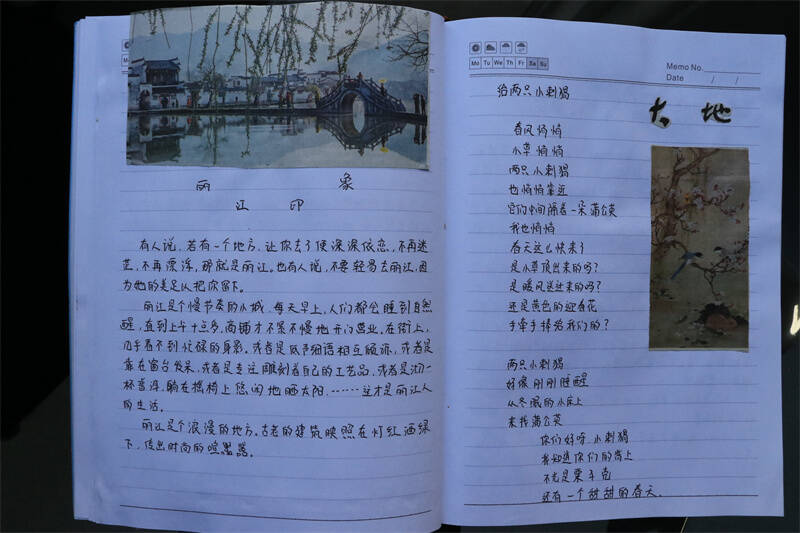 丽 象
江 印
有人说,若有一个地方,让你去了便深深依恋,不再迷
茫,不再漂浮,那就是丽江。也有人说,不要轻易去丽江,因
为她的美足以把你留下。
丽江是个慢节奏的小城,每天早上,人们都会睡到自然
醒,直到上午十点多,商铺才不紧不慢地开门营业。在街上,
几乎看不到忙碌的身影。或者是低声细语相互倾诉,或者是
靠在窗台发呆,或者是专注雕刻着自己的工艺品,或者是沏一
杯香茗,躺在摇椅上悠闲地晒太阳,……这才是丽江人
的生活。
丽江是个浪漫的地方。古老的建筑映照在灯红酒绿
下,传出时尚的喧嚣。
Mo Tu We Th Fr Sa Su
Memo No.
Date / /
给两只小刺猬
大 地
春风悄悄
小草悄悄
两只小刺猬
也悄悄靠近
它们中间隔着一朵蒲公英
我也悄悄
春天这么快来了
是小草顶出来的吗?
是暖风送过来的吗?
还是黄色的迎春花
手牵手捧给我们的?
两只小刺猬
好像刚刚睡醒
从冬眠的小床上
来找蒲公英
你们好呀,小刺猬
我知道你们的背上
不光是栗子壳
还有一个甜甜的春天。